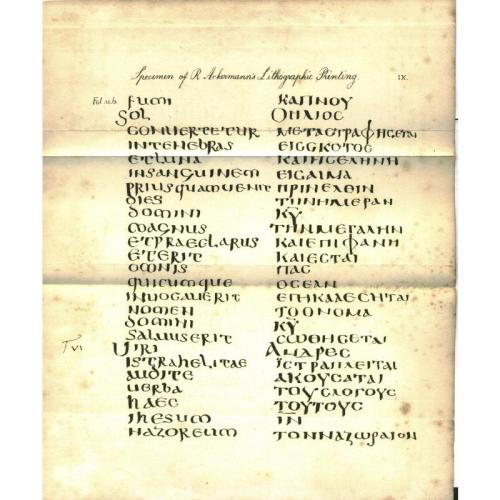 Specimen of R. Ackermann's Lithographic Printing. IX.
fumi ΚΑΠΝΟΥ
Sol ΟΗΛΙΟΣ
conuertetur ΜΕΤΑΣΤΡΑΦΗΣΕΤΑΙ
intenebras ΕΙΣΣΚΟΤΟΣ
etluna ΚΑΙΗΣΕΛΗΝΗ
insanguinem ΕΙΣΑΙΜΑ
priusquamuenit ΠΡΙΝΕΛΘΙΝ
dies ΤΗΝΗΜΕΡΑΝ
domini ΚΥ
magnus ΤΗΝΜΕΓΑΛΗΝ
etpraeclarus ΚΑΙΕΠΙΦΑΝΗ
eterit ΚΑΙΕΣΤΑΙ
omnis ΠΑΣ
quicumque ΟΣΕΑΝ
inuocauerit ΕΠΗΚΑΛΕΣΗΤΑΙ
nomen ΤΟΟΝΟΜΑ
domini ΚΥ
saluuserit ΣΩΘΗΣΕΤΑΙ
Uiri ΑΝΔΡΕΣ
istrahelitae ΪΣΤΡΑΗΛΕΙΤΑΙ
audite ΑΚΟΥΣΑΤΑΙ
uerba ΤΟΥΣΛΟΓΟΥΣ
haec ΤΟΥΤΟΥΣ
ihesum ΙΝ
nazoreum ΤΟΝΝΑΖΩΡΑΙΟΝ